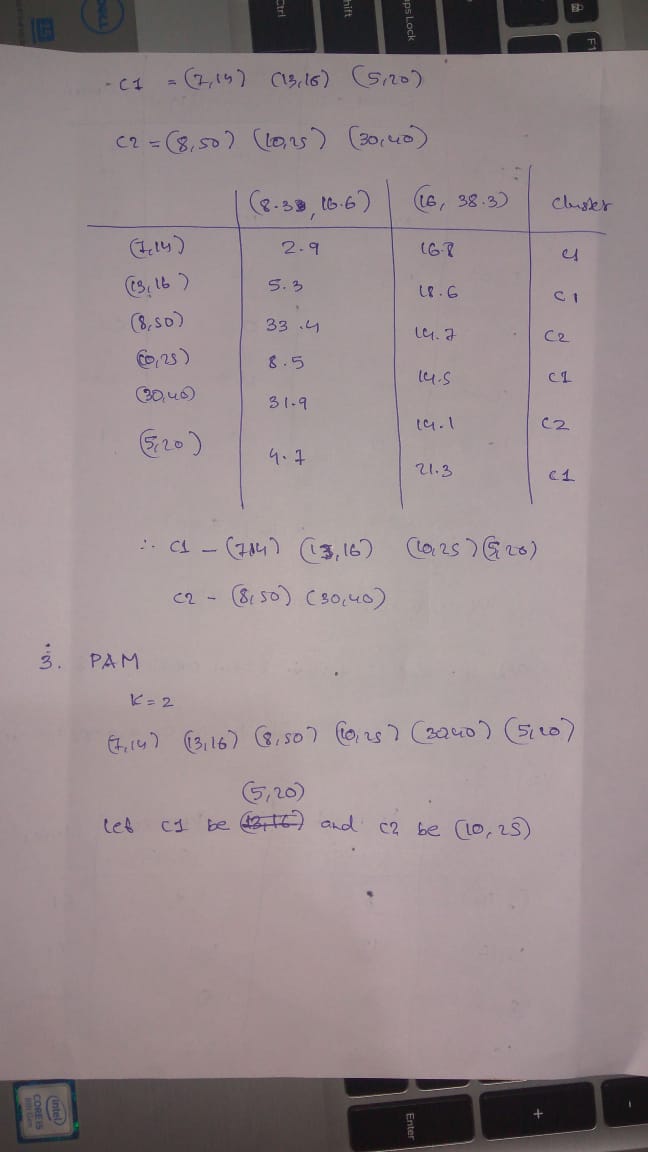 DELL
Ctrl
hift
ps Lock
F1
C1 = (7,14) (13,16) (5,20)
C2 = (8,50) (10,25) (30,40)
(8.33, 16.6) (16, 38.3) Cluster
(7,14) 2.9 16.8 C1
(13,16) 5.3 18.6 C1
(8,50) 33.4 14.7 C2
(10,25) 8.5 14.5 C1
(30,40) 31.9 14.1 C2
(5,20) 4.7 21.3 C1
∴ C1 - (7,14) (13,16) (10,25) (5,20)
C2 - (8,50) (30,40)
3. PAM
K=2
(7,14) (13,16) (8,50) (10,25) (30,40) (5,20)
(5,20)
let C1 be (13,16) and C2 be (10,25)
(intel)
CORE i5
Enter
+
-